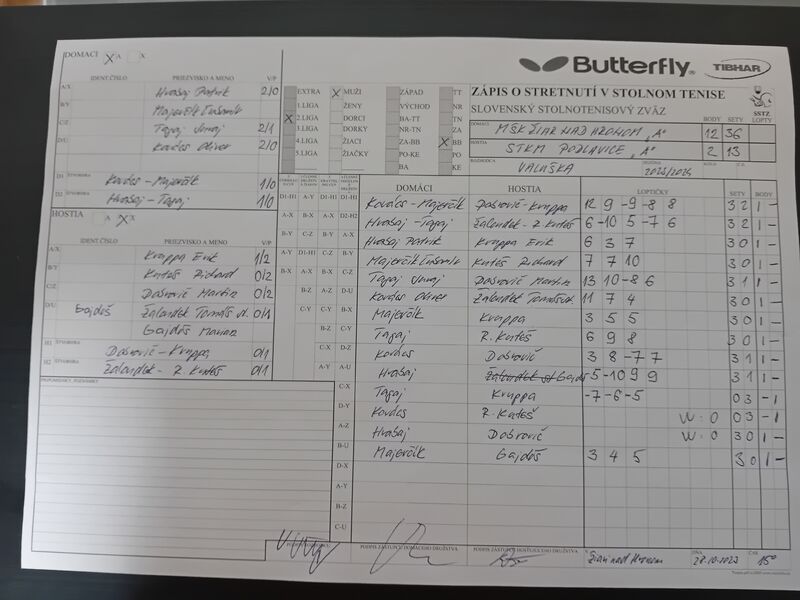 DOMÁCI X A X
IDENT.ČÍSLO PRIEZVISKO A MENO V/P
A/X Hrašaj Patrik 2/0
B/Y Majerčík Ľubomír
C/Z Tapaj Juraj 2/1
D/U Kovács Oliver 2/0
D1 Kovács - Majerčík 1/0
D2 Hrašaj - Tapaj 1/0
HOSTIA A X X
IDENT.ČÍSLO PRIEZVISKO A MENO V/P
A/X Kruppa Erik 1/2
B/Y Kuteš Richard 0/2
C/Z Dobrovič Martin 0/2
D/U Gajdoš Žalandek Tomáš st. 0/1
Gajdoš Marian
H1 ŠTVORHRA Dobrovič - Kruppa 0/1
H2 ŠTVORHRA Žalandek - R. Kuteš 0/1
PRIPOMIENKY, POZNÁMKY
Butterfly TIBHAR
EXTRA X MUŽI ZÁPAD TT
1.LIGA ŽENY VÝCHOD NR
X 2.LIGA DORCI BA-TT TN
3.LIGA DORKY NR-TN ZA
4.LIGA ŽIACI ZA-BB X BB
5.LIGA ŽIAČKY PO-KE PO
BA KE
ZÁPIS O STRETNUTÍ V STOLNOM TENISE
SLOVENSKÝ STOLNOTENISOVÝ ZVÄZ
SSTZ
BODY SETY LOPTY
DOMÁCI MŠK ŽIAR NAD HRONOM „A" 12 36
HOSTIA STKM PODLAVICE „A" 2 13
ROZHODCA VALUŠKA
DOMÁCI HOSTIA LOPTIČKY SETY BODY
Kovács - Majerčík Dobrovič - Kruppa 12 9 -9 -8 8 3 2 1 -
Hrašaj - Tapaj Žalandek - R. Kuteš 6 -10 5 -7 6 3 2 1 -
Hrašaj Patrik Kruppa Erik 6 3 7 3 0 1 -
Majerčík Ľubomír Kuteš Richard 7 7 10 3 0 1 -
Tapaj Juraj Dobrovič Martin 13 10 -8 6 3 1 1 -
Kovács Oliver Žalandek Tomáš st. 11 7 4 3 0 1 -
Majerčík Kruppa 3 5 5 3 0 1 -
Tapaj R. Kuteš 6 9 8 3 0 1 -
Kovács Dobrovič 3 8 -7 7 3 1 1 -
Hrašaj Gajdoš 5 -10 9 9 3 1 1 -
Tapaj Kruppa -7 -6 -5 0 3 - 1
Kovács R. Kuteš W:O 0 3 - 1
Hrašaj Dobrovič W:O 3 0 1 -
Majerčík Gajdoš 3 4 5 3 0 1 -
PODPIS ZÁSTUPCU DOMÁCEHO DRUŽSTVA PODPIS ZÁSTUPCU HOSŤUJÚCEHO DRUŽSTVA V Žiari nad Hronom DŇA 28.10.2023 ČAS 15°